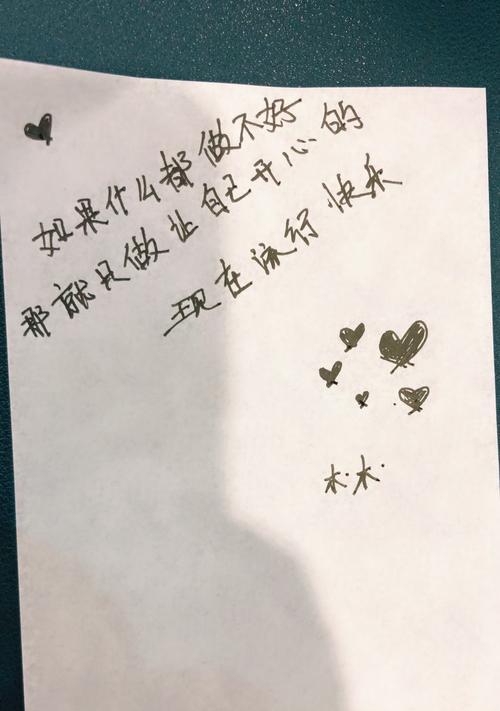 如果什么都做不好
那就只做让自己开心的
现在流行快乐
木.木.